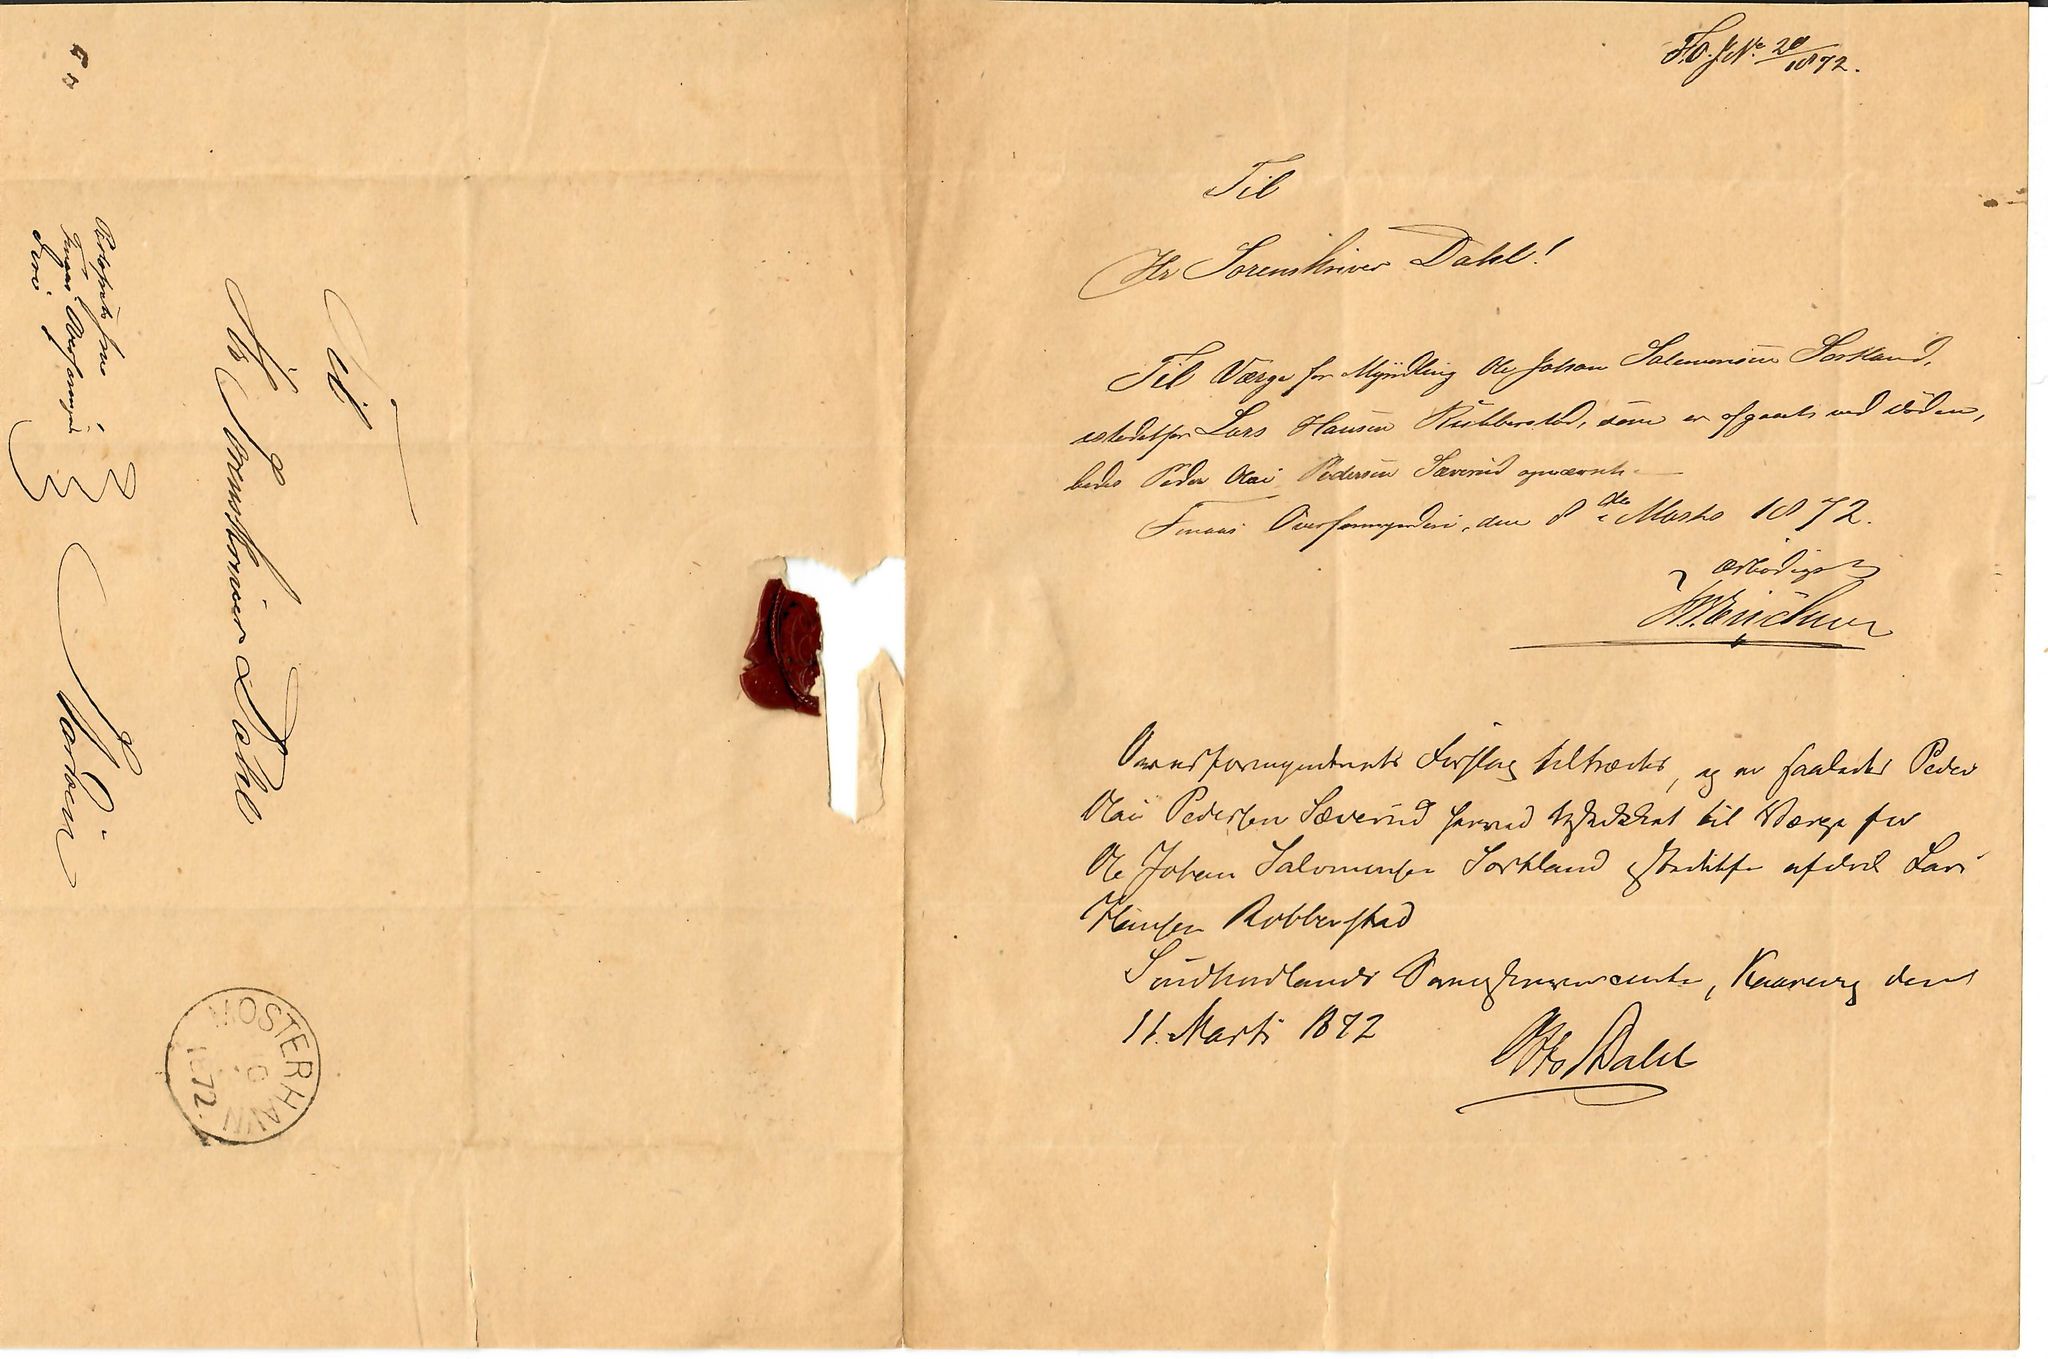 Til
Hr Sorenskriver Dahl
Porto frit fra
Finaas Overformynderi
Mosterhavn
1872
F.O.J.No 20/1872.
Til
Hr Sorenskriver Dahl!
Til Værge for Myndling Ole Johan Salomonsen Sortland,
istedetfor Lars Hansen Rubberstad, som er afgaaet ved Døden,
bedes Peder Olai Pedersen Sæverud opnævnt.
Finaas Overformynderi, den 8de Marts 1872.
ærbødigst
Overformynderiets Forslag tiltrædes, og er saaledes Peder
Olai Pedersen Sæverud herved beskikket til Værge for
Ole Johan Salomonsen Sortland istedetfor afdøde Lars
Hansen Robberstad
Søndhordlands Sorenskriverembede, den
11. Marts 1872
Otto Dahl